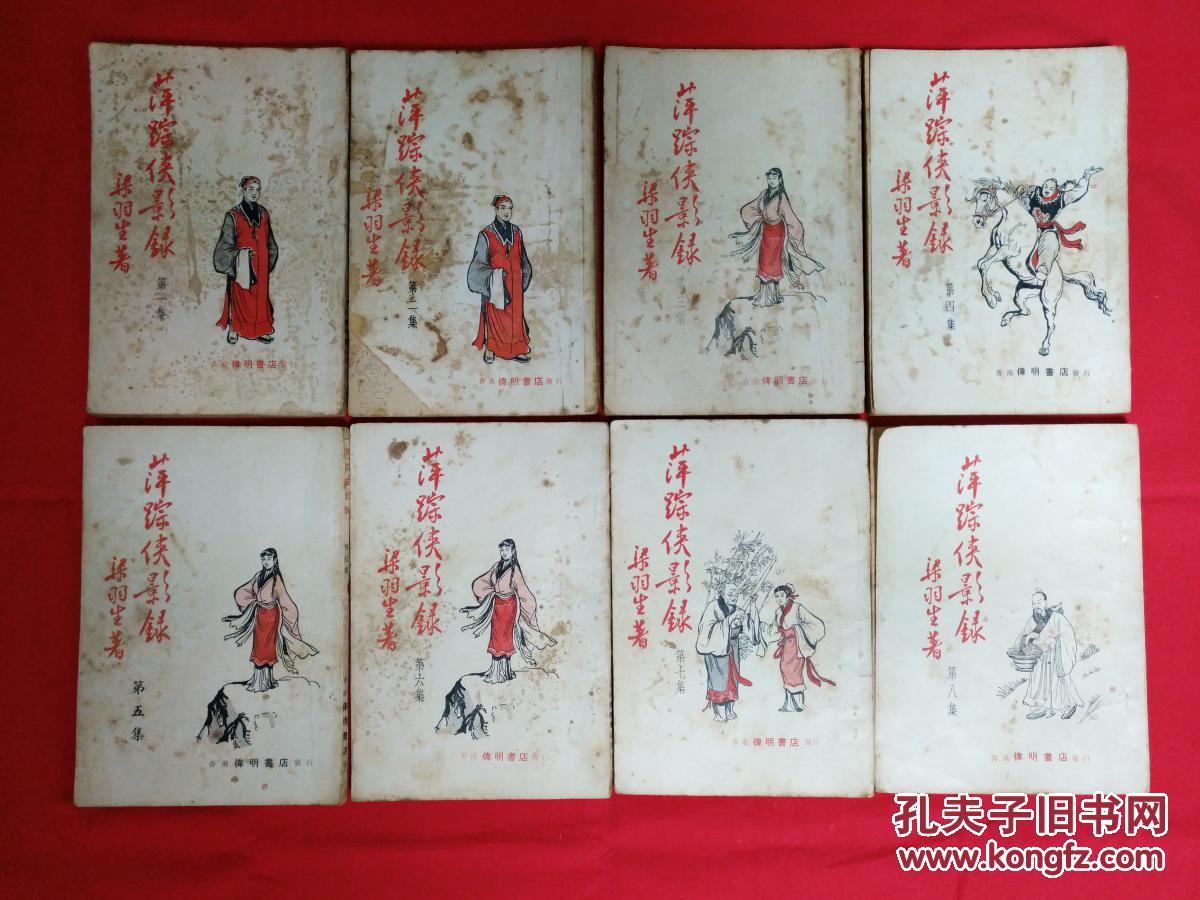 萍踪侠影録
梁羽生著
第一集
香港 偉明書店 發行
萍踪侠影録
梁羽生著
第二集
香港 偉明書店 發行
萍踪侠影録
梁羽生著
三集
香港 偉明書店 發行
萍踪侠影録
梁羽生著
第四集
香港 偉明書店 發行
萍踪侠影録
梁羽生著
第五集
香港 偉明書店 發行
萍踪侠影録
梁羽生著
第六集
香港 偉明書店 發行
萍踪侠影録
梁羽生著
第七集
香港 偉明書店 發行
萍踪侠影録
梁羽生著
第八集
香港 偉明書店 發行
孔夫子旧书网
www.kongfz.com